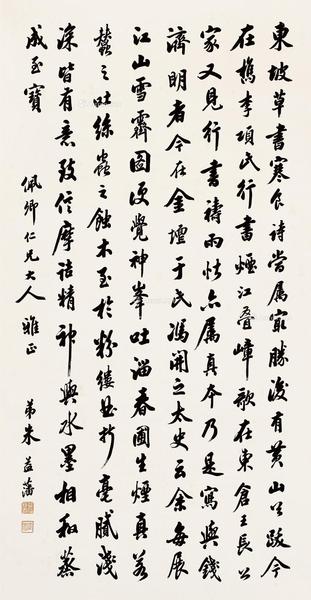 東坡草書寒食詩當屬最勝後有黃山谷跋今
在檇李項氏行書煙江疊嶂歌在東倉王長公
家又見行書禱雨帖亦屬真本乃是寫與錢
濟明者今在金壇于氏馮開之太史云余每展
江山雪霽圖便覺神峯吐溜春圃生煙真若
蠶之吐絲蟲之蝕木至於粉縷曲折毫膩淺
深皆有意致信摩詰精神與水墨相和蒸
成至寶
佩卿仁兄大人雅正
弟朱益藩